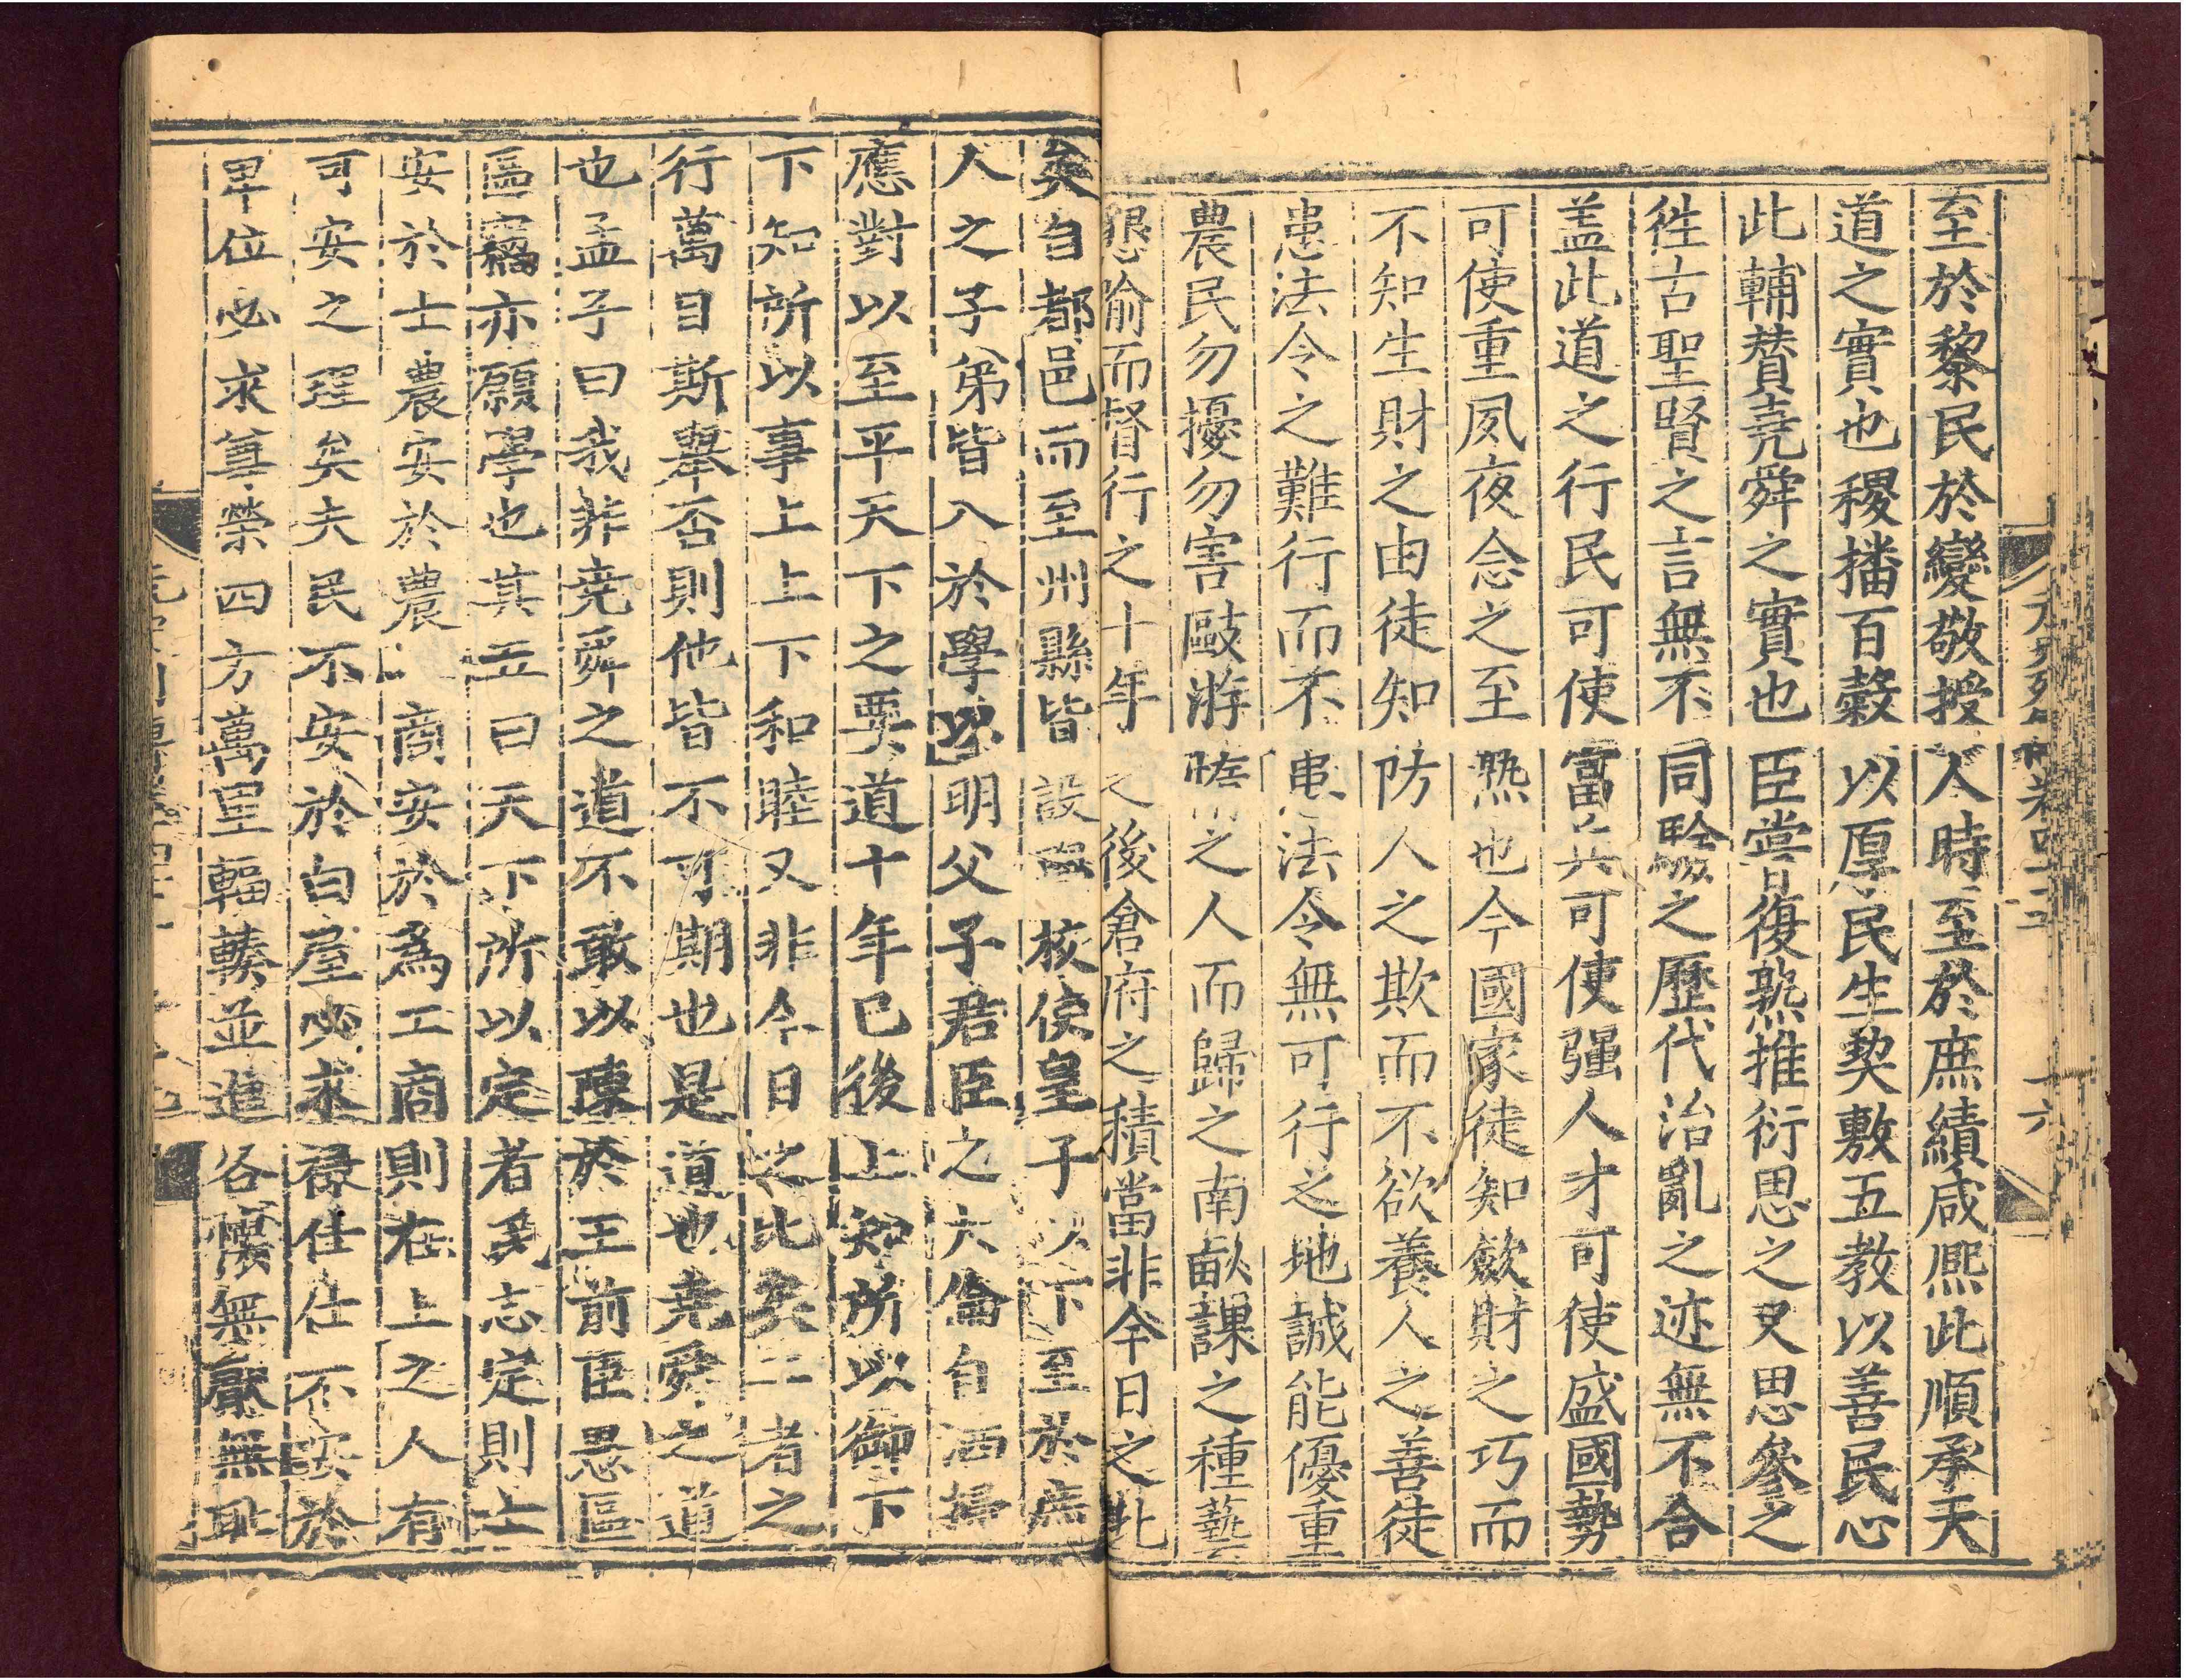 至於黎民於變敬授人時至於庶績咸熈此順承天
道之實也稷播百穀以厚民生契敷五教以善民心
此輔賛堯舜之實也臣嘗復熟推衍思之又思叅之
徃古聖賢之言無不同驗之歷代治亂之迹無不合
盖此道之行民可使富兵可使强人才可使盛國勢
可使重夙夜念之至熟也今國家徒知歛財之巧而
不知生財之由徒知防人之欺而不欲養人之善徒
患法令之難行而不患法令無可行之地誠能優重
農民勿擾勿害敺游惰之人而歸之南畝課之種藝
懇喻而督行之十年之後倉府之積當非今日之比
矣自都邑而至州縣皆設學校使皇子以下至於庶
人之子弟皆入於學以明父子君臣之大倫自洒掃
應對以至平天下之要道十年已後上知所以御下
下知所以事上上下和睦又非今日之比矣二者之
行萬目斯舉否則他皆不可期也是道也堯舜之道
也孟子曰我非堯舜之道不敢以陳於王前臣愚區
區竊亦願學也其五曰天下所以定者民志定則士
安於士農安於農工商安於為工商則在上之人有
可安之理矣夫民不安於白屋必求祿仕仕不安於
卑位必求尊榮四方萬里輻輳並進各懷無厭無耻